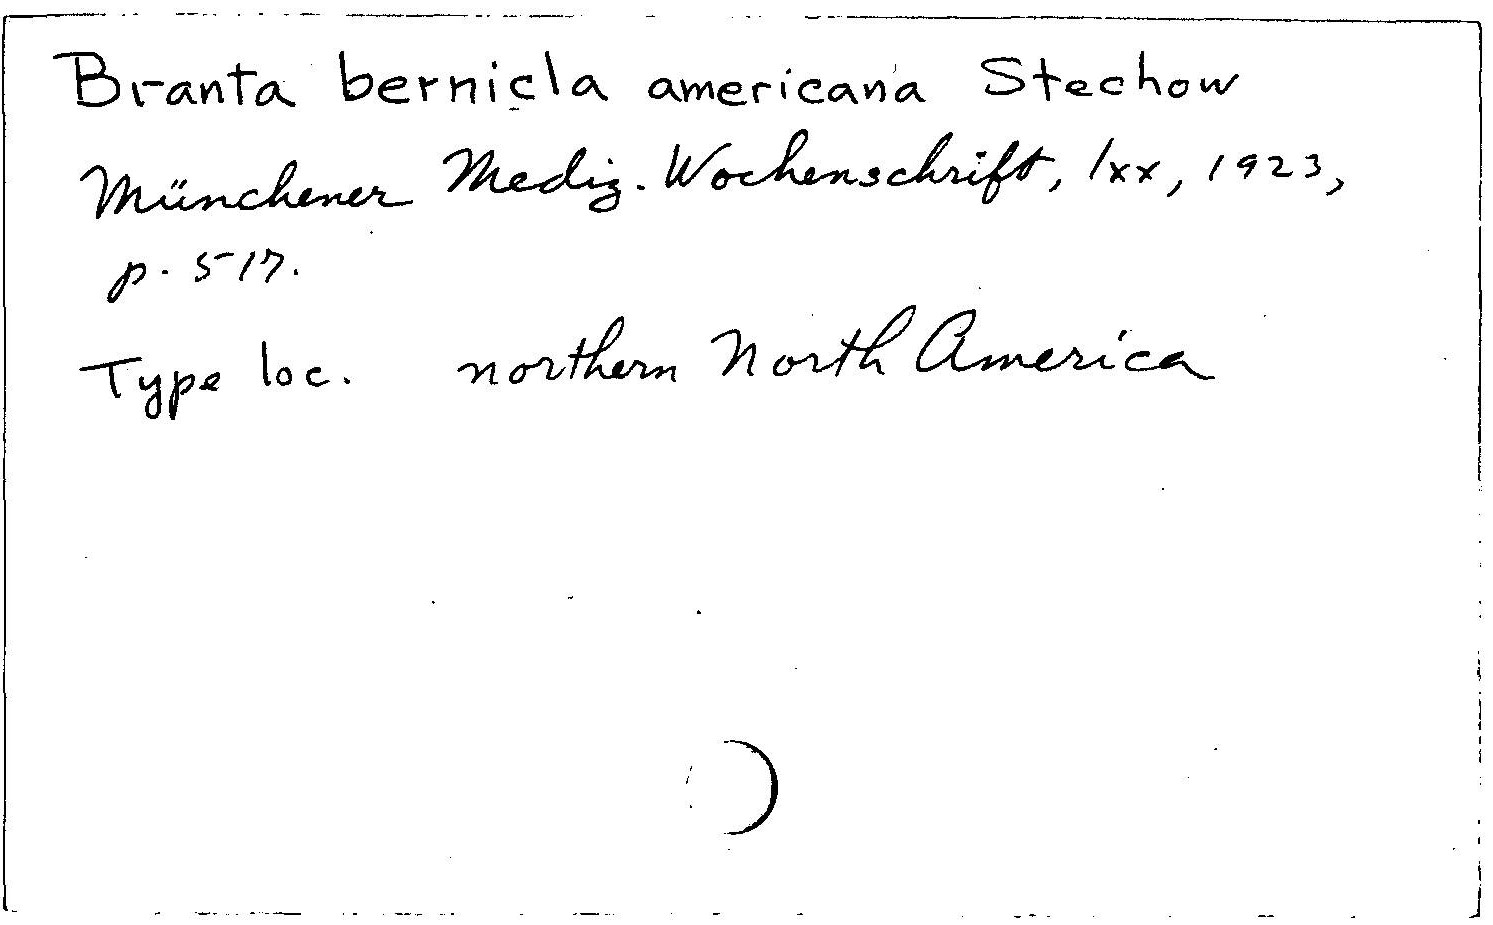 Branta bernicla americana Stechow
Münchener Mediz. Wochenschrift, lxx, 1923,
p. 517.
Type loc. northern North America